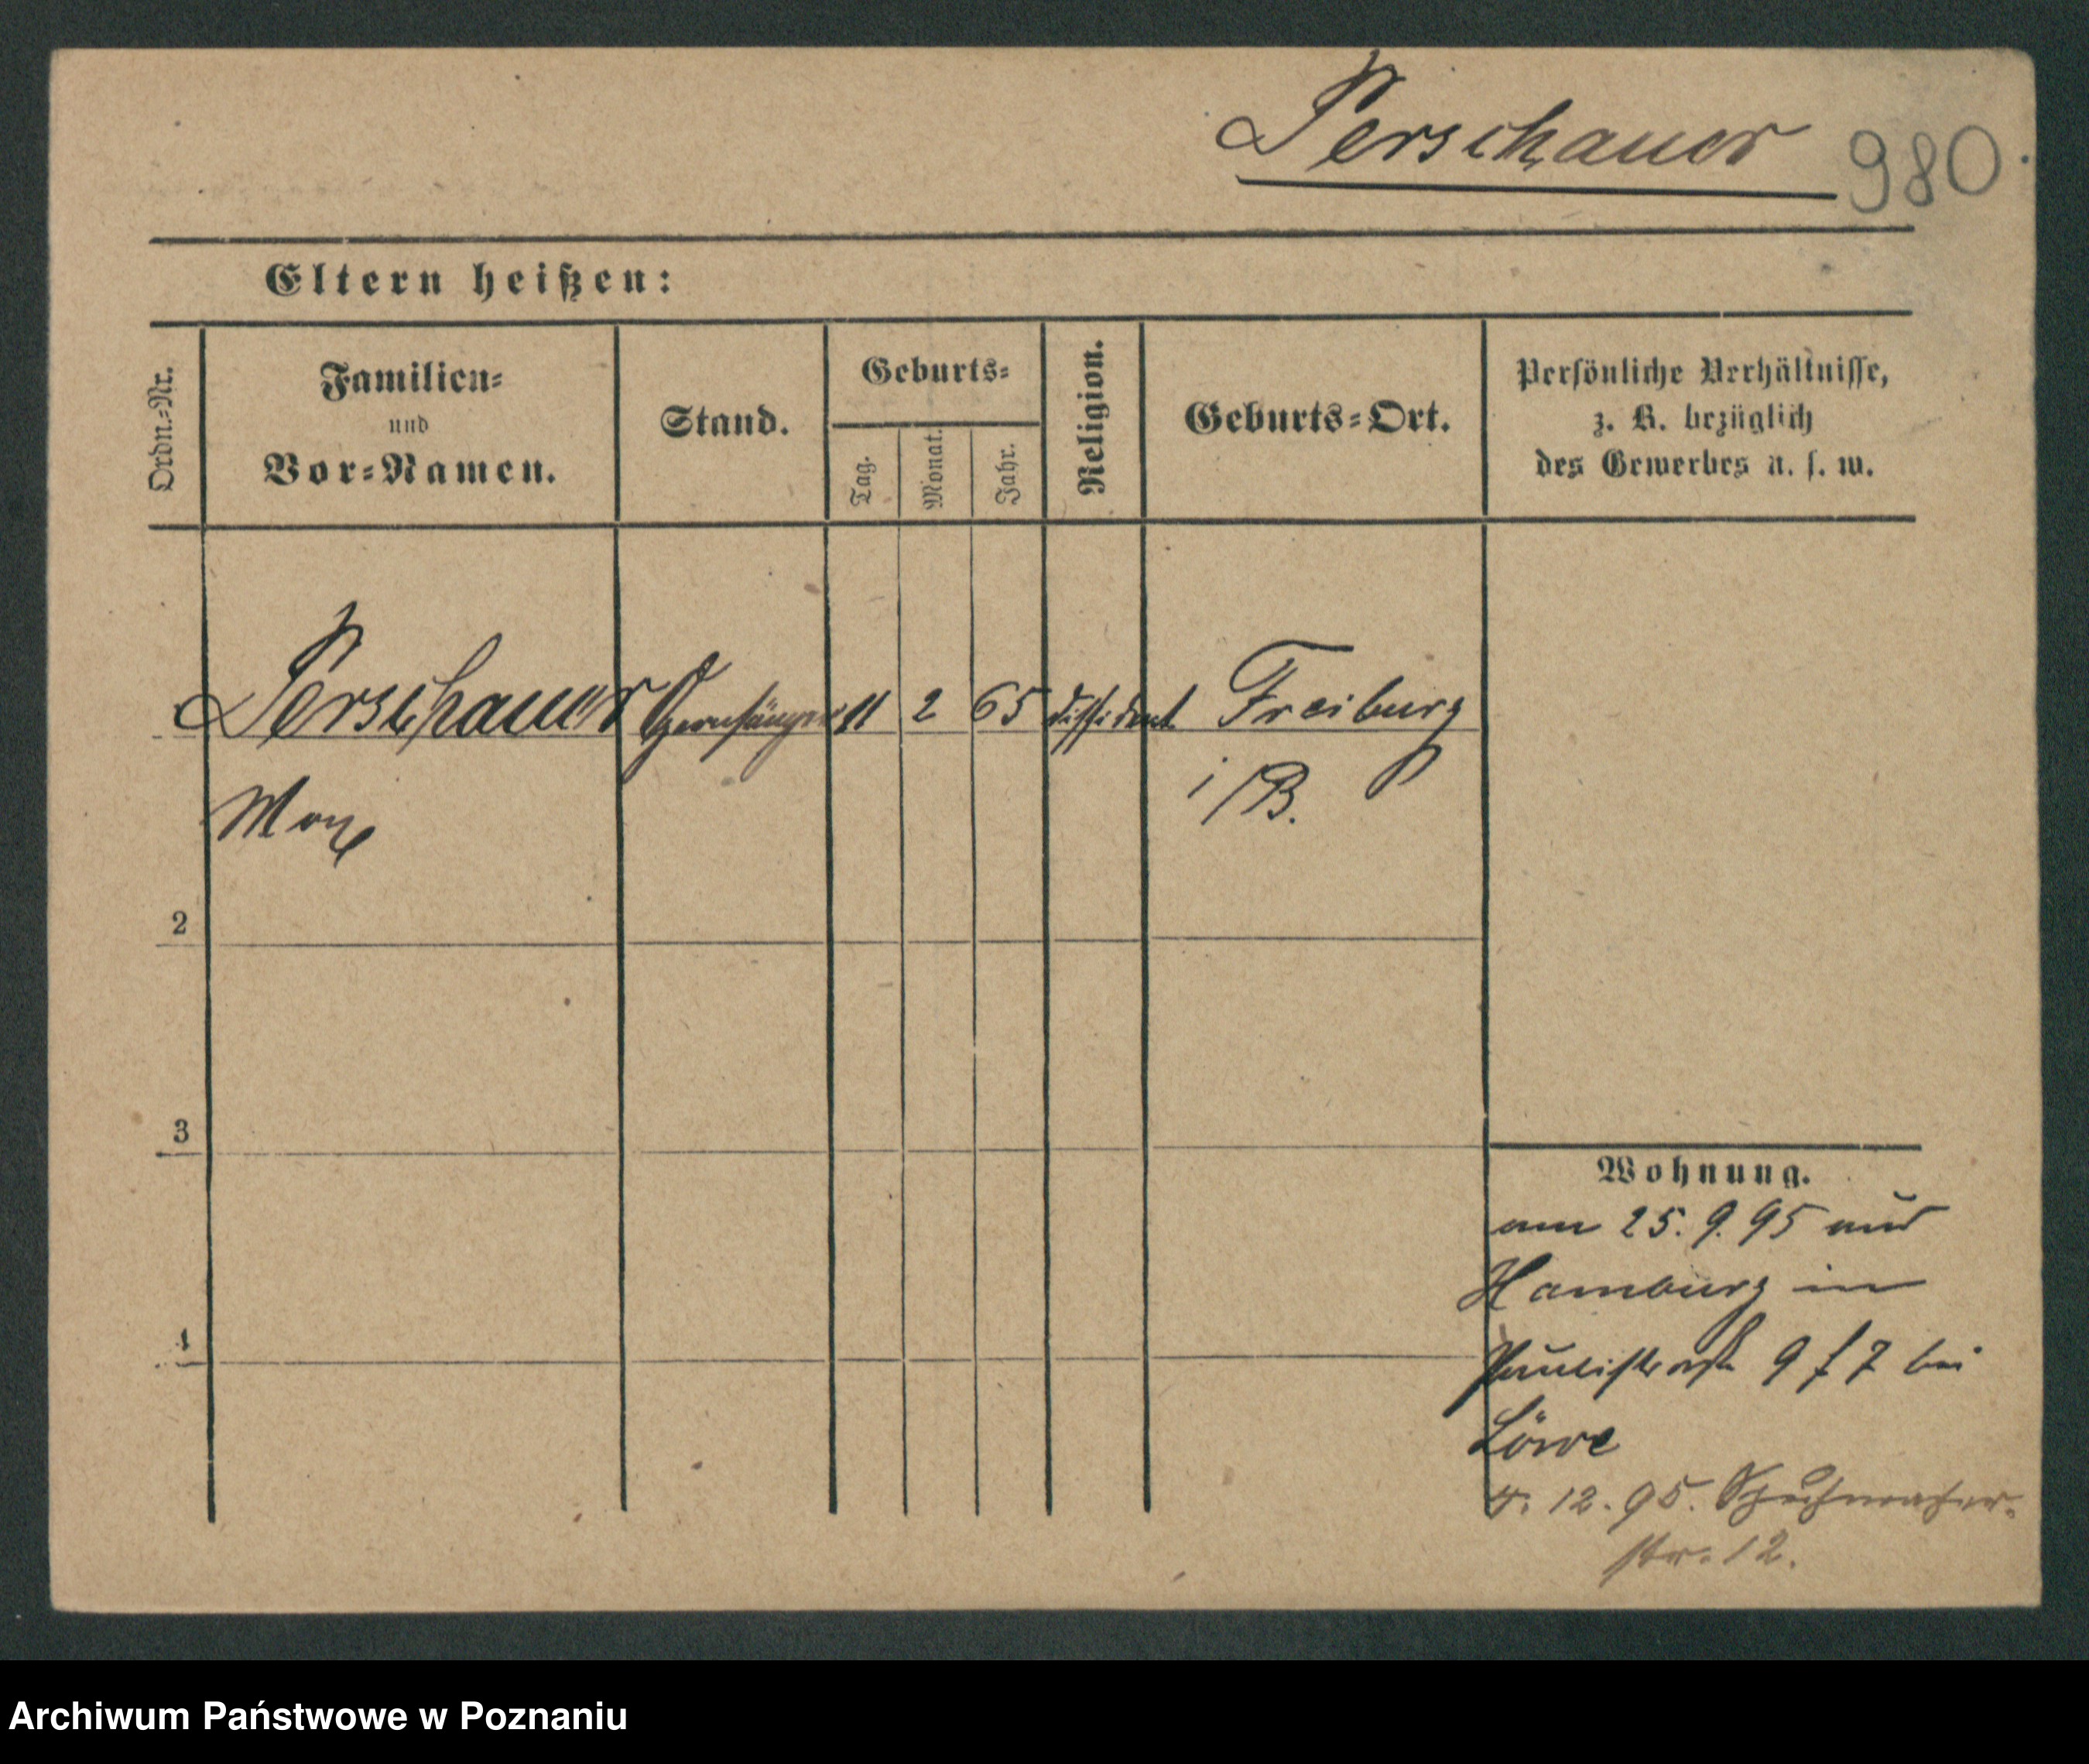 Perschauer
980.
Eltern heißen:
Ordn.=Nr.
Familien=
und
Vor=Namen.
Stand.
Geburts=
Tag.
Monat.
Jahr.
Religion.
Geburts=Ort.
Persönliche Verhältnisse,
z. B. bezüglich
des Gewerbes u. s. w.
Perschauer Opernsänger 11 2 65 dissident Freiburg
Max i/B.
2
3
4
Wohnung.
am 25.9.95 aus
Hamburg in
Paulistraße 9 f 7 bei
Löwe
4. 12. 95.
str. 12.
Archiwum Państwowe w Poznaniu